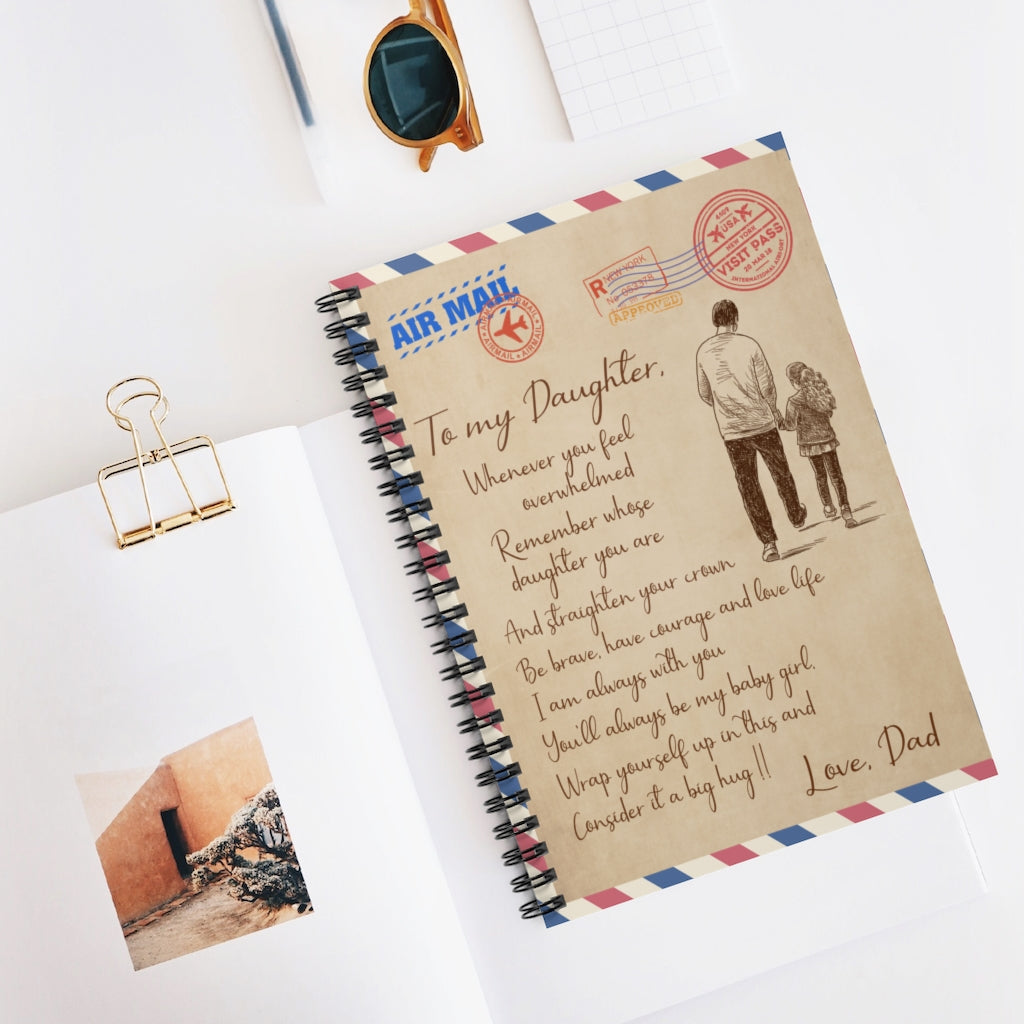 AIR MAIL
AIRMAIL AIRMAIL AIRMAIL
R NEW YORK
APPROVED
USA
NEW YORK
VISIT PASS
20 MAR 18
INTERNATIONAL AIRPORT
To my Daughter,
Whenever you feel
overwhelmed
Remember whose
daughter you are
And straighten your crown
Be brave, have courage and love life
I am always with you
You'll always be my baby girl.
Wrap yourself up in this and
Consider it a big hug !!
Love, Dad